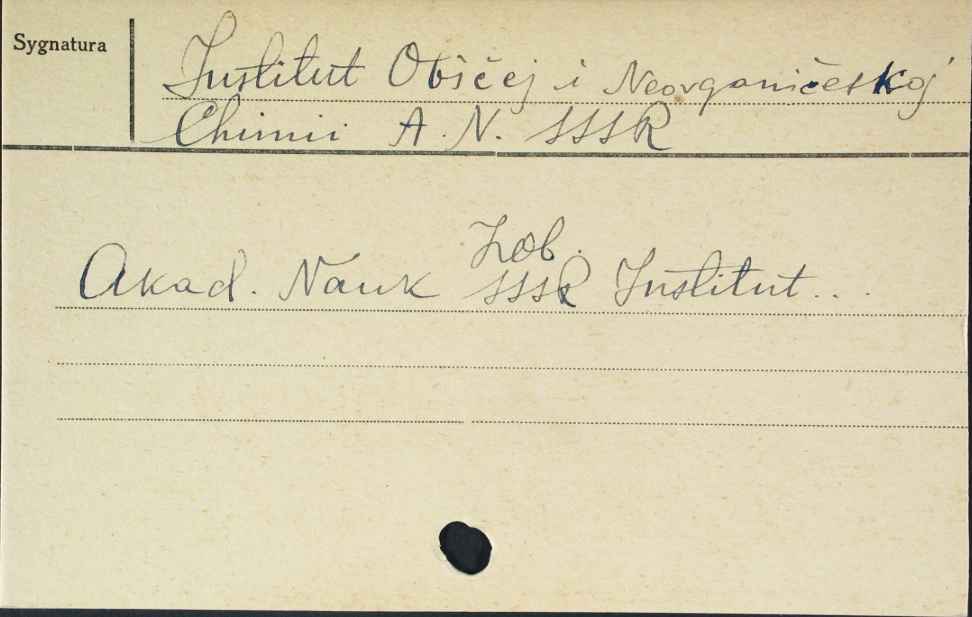 Sygnatura
Institut Obščej i Neorganičeskoj
Chimii A. N. SSSR
Zob.
Akad. Nauk SSSR Institut...